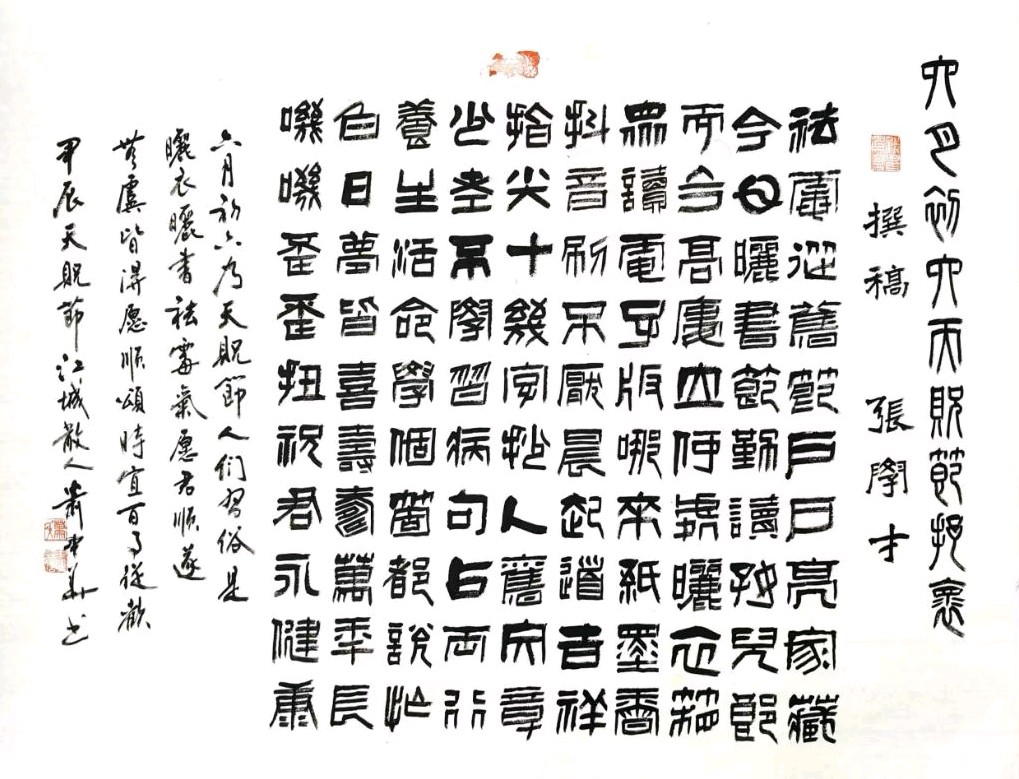 六月初六天貺節抒褱
撰稿 張學才
祛霉迎舊節戶戶亮家藏
今日曬書節勤讀好兒郎
而今高廔立何處曬衣箱
眾讀電子版哪來紙墨香
抖音刷不厭晨起道吉祥
指尖十幾字抄人舊文章
少壯不學習病句占兩行
養生活命學個箇都說忙
白日夢皆喜壽萬年長
嘰嘰歪歪扭祝君永健康
六月初六乃天貺節人们習俗是
曬衣曬書祛霉氣愿君順遂
無虞皆得愿順頌時宜百事從歡
甲辰天貺節江城散人書